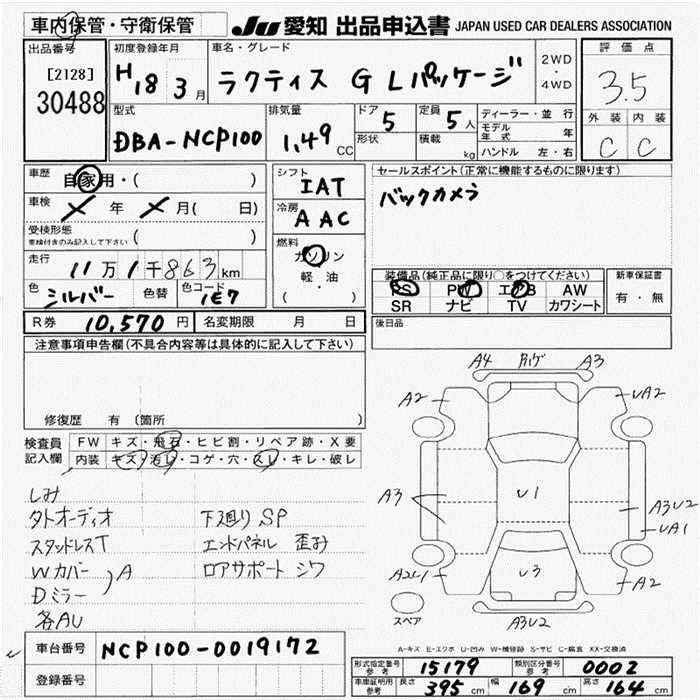 車内保管・守衛保管
JU 愛知 出品申込書 JAPAN USED CAR DEALERS ASSOCIATION
出品番号
[2128]
30488
初度登録年月
H18 3月
車名・グレード
ラクティス G Lパッケージ
2WD
・
4WD
評価点
3.5
外装 内装
C C
型式
DBA-NCP100
排気量
1.49 CC
ドア
5
形状
定員
5人
積載
kg
ディーラー・並行
モデル年式 年
ハンドル 左・右
車歴
自家用・( )
車検
年 月( 日)
受検形態
車検付きのみ記入して下さい ( )
走行
11万1千863km
色
シルバー
色替
色コード
1E7
シフト
IAT
冷房
AAC
燃料
ガソリン
軽・油
( )
セールスポイント(正常に機能するものに限ります)
バックカメラ
装備品(純正品に限り○をつけてください)
PS PW エアB AW
SR ナビ TV カワシート
新車保証書
有・無
R券 10,570円 名変期限 月 日
後日品
注意事項申告欄(不具合内容等は具体的に記入して下さい)
修復歴 有 (箇所 )
検査員
記入欄
FW キズ・飛石・ヒビ割・リペア跡・X要
内装 キズ・汚れ・コゲ・穴・スレ・キレ・破レ
しみ
タトオーディオ 下廻りSP
スタッドレスT エンドパネル 歪み
Wカバー A ロアサポート シワ
Dミラー
各AU
A4 A3
A2 UA2
U1
A3 A3U2
UA1
A2U1 A2
U3
スペア
A3U2
A-キズ E-エクボ U-凹み W-補修跡 S-サビ C-腐食 XX-交換済
車台番号 NCP100-0019172
登録番号
形式指定番号 参考 15179 類別区分番号 参考 0002
車庫証明用 参考 長さ 395cm 幅 169cm 高さ 164cm